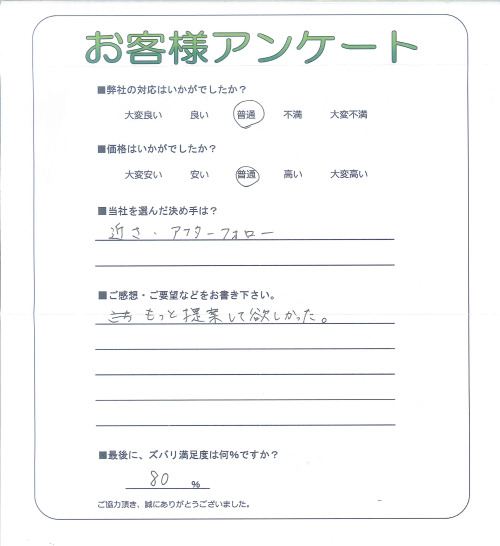 お客様アンケート
■弊社の対応はいかがでしたか？
大変良い 良い 普通 不満 大変不満
■価格はいかがでしたか？
大変安い 安い 普通 高い 大変高い
■当社を選んだ決め手は？
近さ・アフターフォロー
■ご感想・ご要望などをお書き下さい。
もっと提案して欲しかった。
■最後に、ズバリ満足度は何%ですか？
80 %
ご協力頂き、誠にありがとうございました。